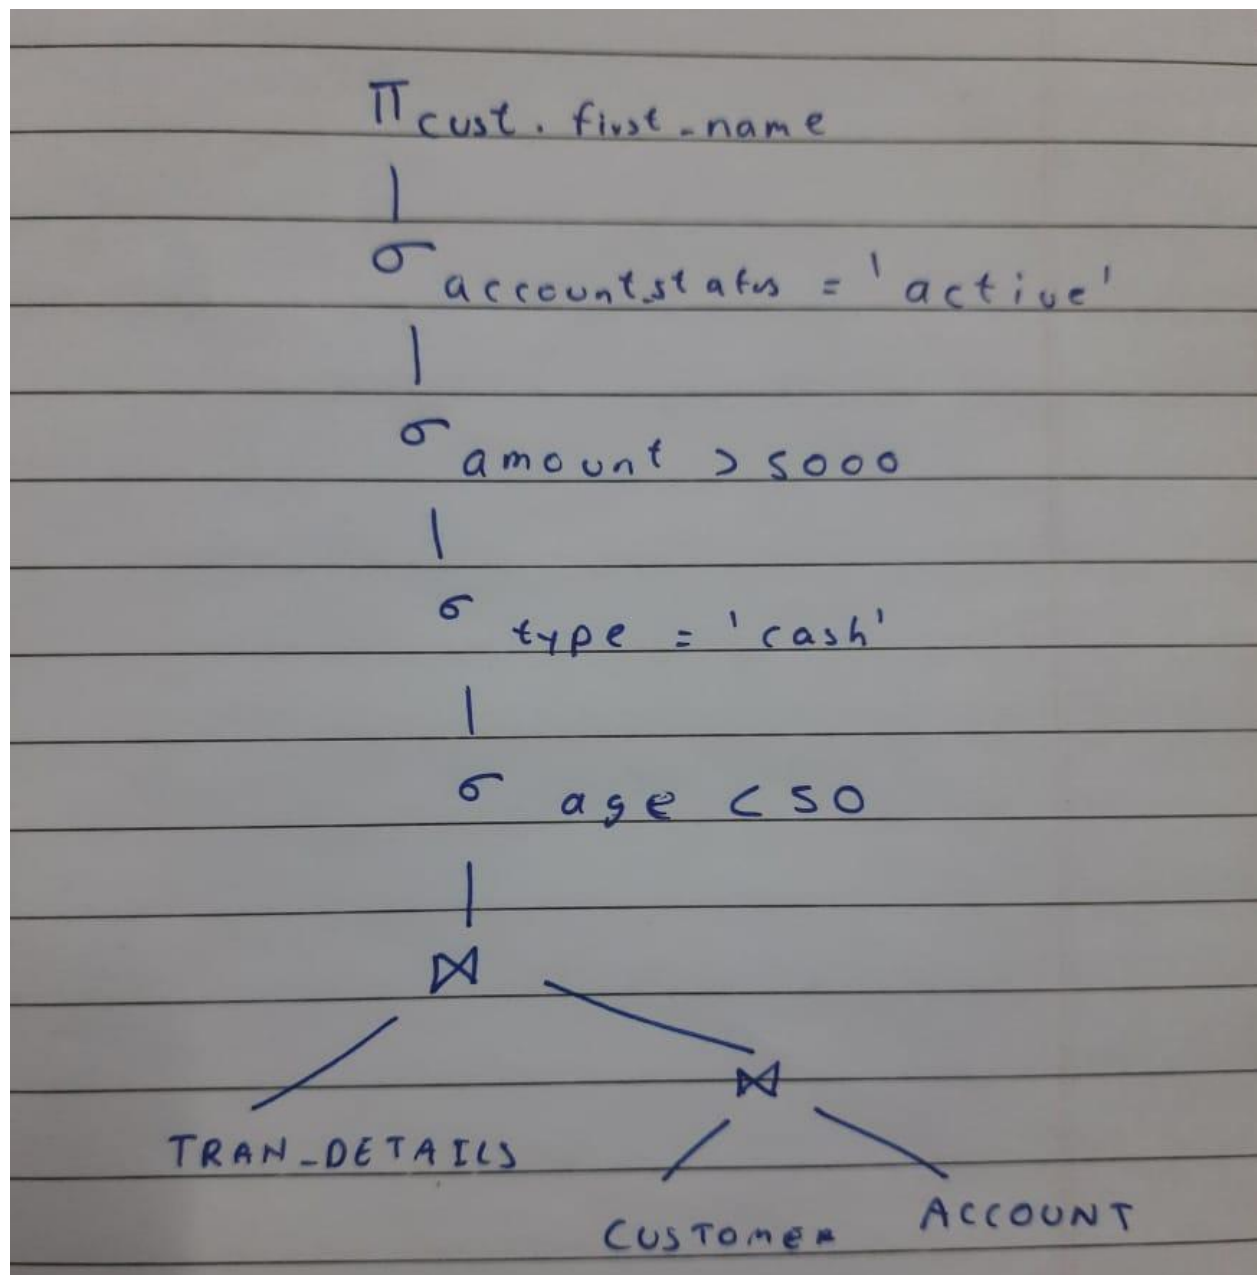 π cust. first_name
σ account.status = 'active'
σ amount > 5000
σ type = 'cash'
σ age < 50
⋈
⋈
TRAN_DETAILS
CUSTOMER ACCOUNT